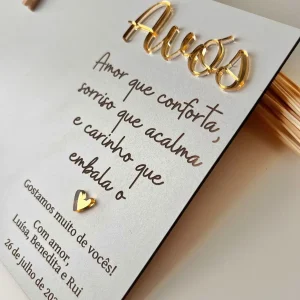 Avós
Amor que conforta,
sorriso que acalma
e carinho que
embala o
Gostamos muito de vocês!
Com amor,
Luísa, Benedita e Rui
26 de julho de